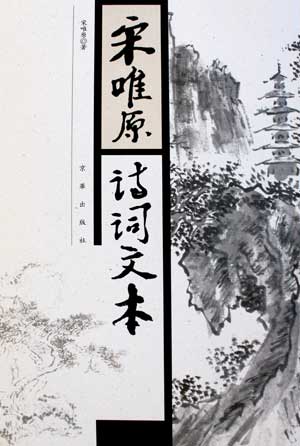 宋唯原
诗词文本
宋唯原◎著
京华出版社